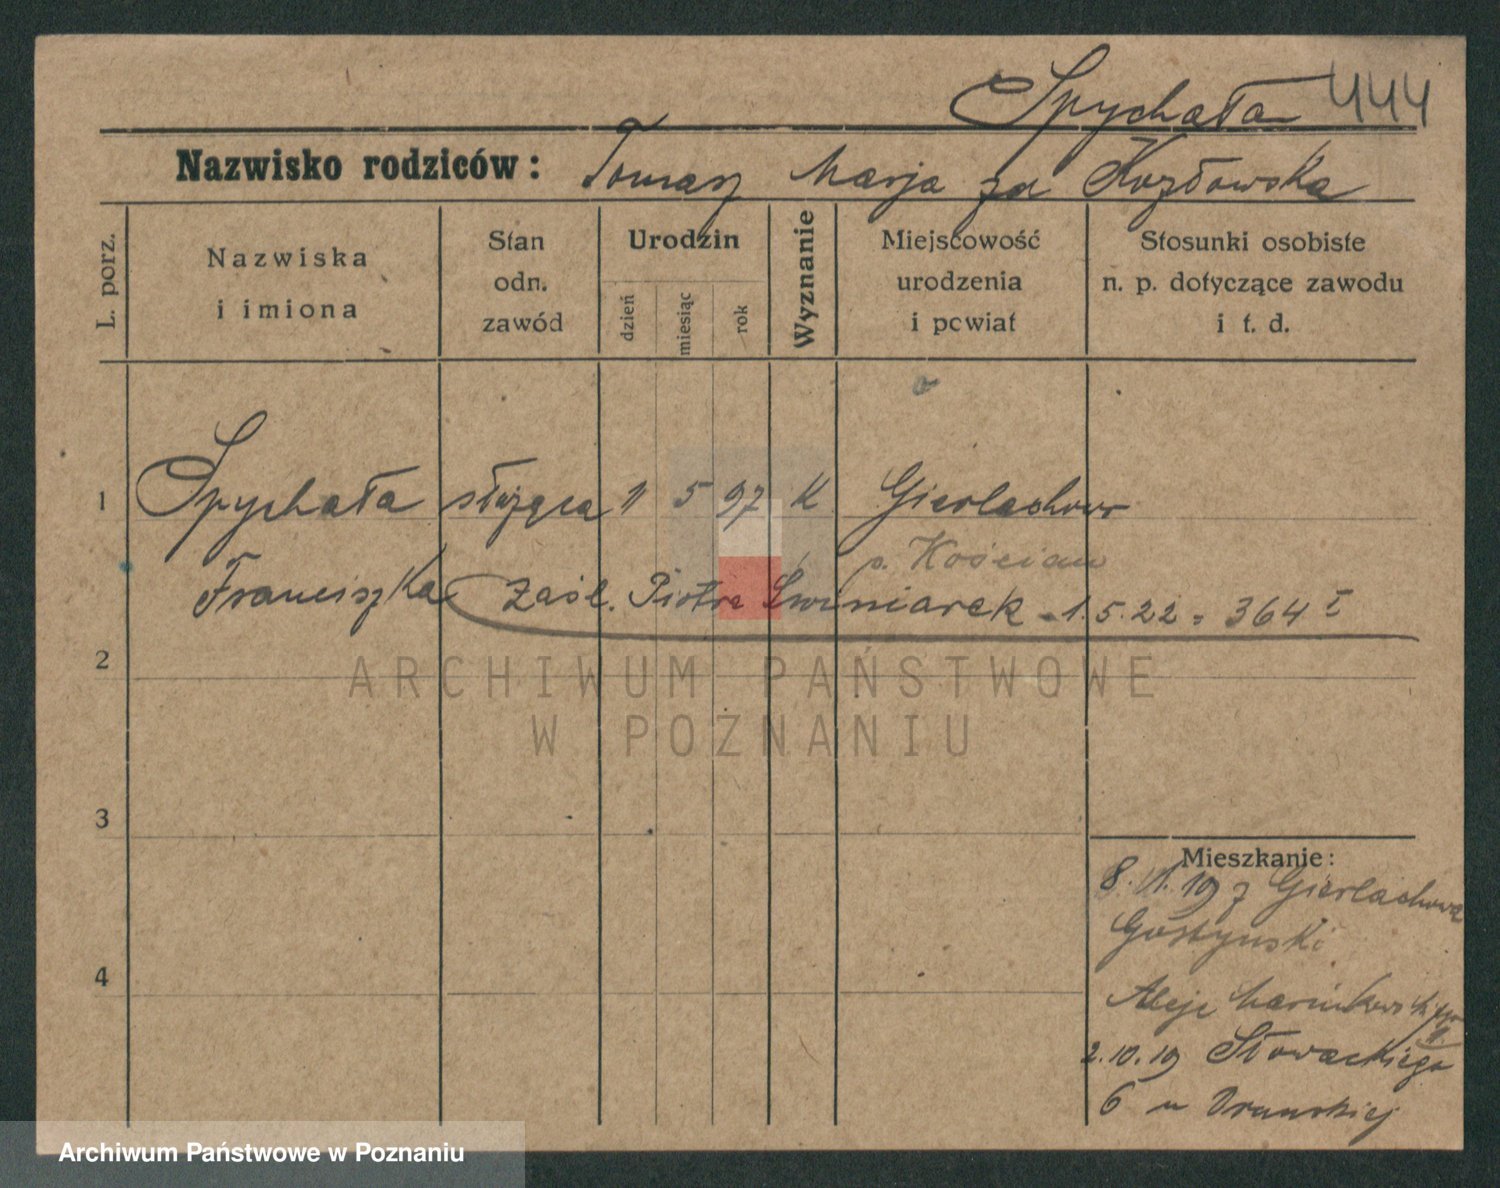 Spychała 444
Nazwisko rodziców: Tomasz Marja zd Kozłowska
L. porz.
Nazwiska
i imiona
Stan
odn.
zawód
Urodzin
dzień
miesiąc
rok
Wyznanie
Miejscowość
urodzenia
i powiat
Stosunki osobiste
n. p. dotyczące zawodu
i t. d.
1 Spychała służąca 11 5 97 K Gierlachowo
p. Kościan
Franciszka zaśl. Piotra Świniarek - 1.5.22 = 364 I
2
ARCHIWUM PAŃSTWOWE
W POZNANIU
3
Mieszkanie:
8. 19 z Gierlachowa
Gostyński
4
Aleje Marcinkowsk
2.10.19 Słowackiego
6 u
Archiwum Państwowe w Poznaniu